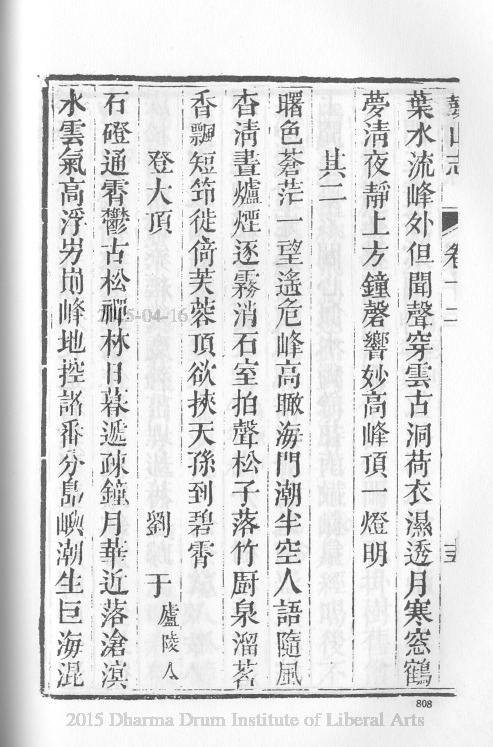 鼓山志 卷十二 十五
葉水流峰外但聞聲穿雲古洞荷衣濕透月寒窓鶴
夢淸夜靜上方鐘磬響妙高峰頂一燈明
其二
曙色蒼茫一望遙危峰高瞰海門潮半空人語隨風
杳淸晝爐煙逐霧消石室拍聲松子落竹厨泉溜茗
香飄短笻徙倚芙蓉頂欲挾天孫到碧霄
登大頂 劉于廬陵人
石磴通霄鬱古松禪林日暮遞疎鐘月華近落滄溟
水雲氣高浮屴崱峰地控諸番分島嶼潮生巨海混
808
2015-04-16
2015 Dharma Drum Institute of Liberal Arts